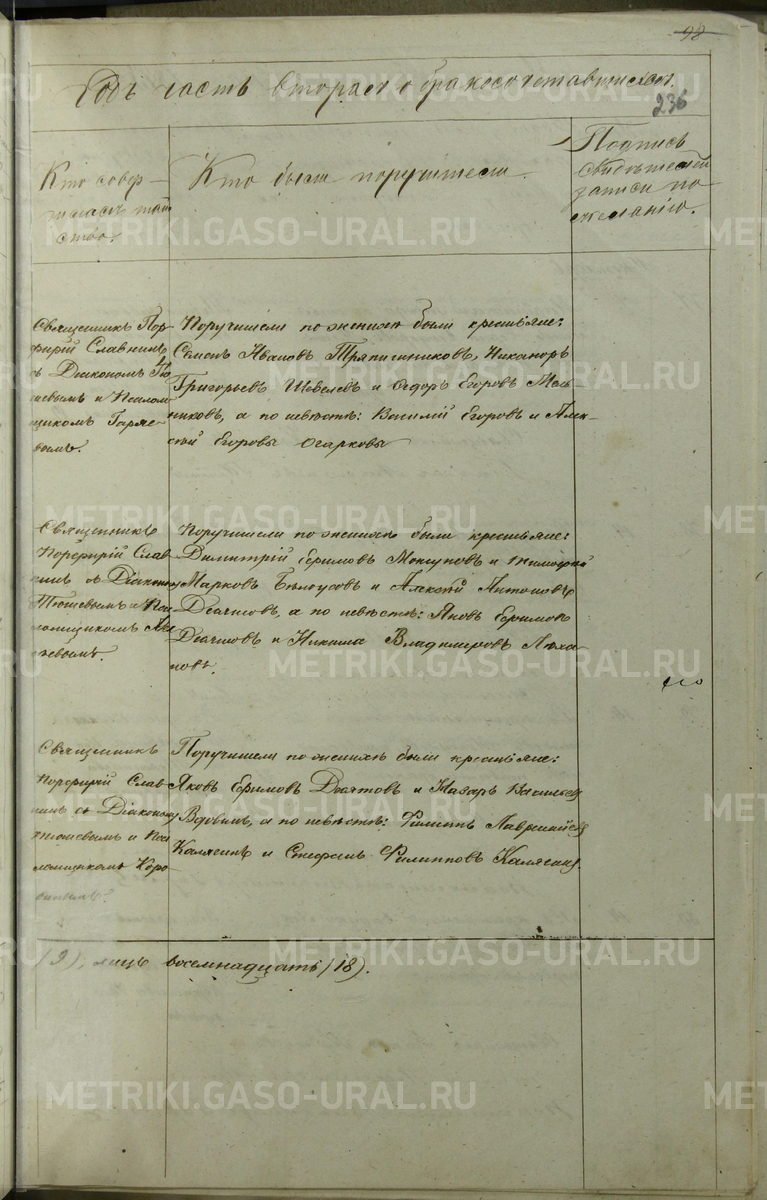 98
Годъ часть вторая о бракосочетавшихся.
236
Кто совер-
шалъ таин
ство.
Кто были поручители.
Подпись
свидѣтелей
записи по
желанію.
Священникъ Пор-
фирій Славнинъ
съ Діакономъ Тю
шевымъ и Псалом
щикомъ Гаряе-
вымъ.
Поручители по женихѣ были крестьяне:
Семенъ Ивановъ Тряпишниковъ, Никаноръ
Григорьевъ Шевелевъ и Ѳедоръ Егоровъ Мель-
никовъ, а по невѣстѣ: Василій Егоровъ и Алек-
сѣй Егоровы Огарковы
Священникъ
Порфирій Слав-
нинъ съ Діакономъ
Тюшевымъ и Пса
ломщикомъ
Поручители по женихѣ были крестьяне:
Димитрій Ефимовъ и Тимофей
Марковъ Бѣлоусовъ и Алексѣй Антоновъ
Десятовъ, а по невѣстѣ: Яковъ Ефимовъ
Десятовъ и Никита Владимировъ Ляха-
новъ.
Священникъ
Порфирій Слав-
нинъ съ Діакономъ
Тюшевымъ и Пса
ломщикомъ Коро-
Поручители по женихѣ были крестьяне:
Яковъ Ефимовъ Десятовъ и Назаръ Васильевъ
Вдовинъ, а по невѣстѣ: Филиппъ Лаврентьевъ
Калягинъ и Стефанъ Филипповъ Калягинъ.
(9), лицъ восемнадцать (18).
METRIKI.GASO-URAL.RU